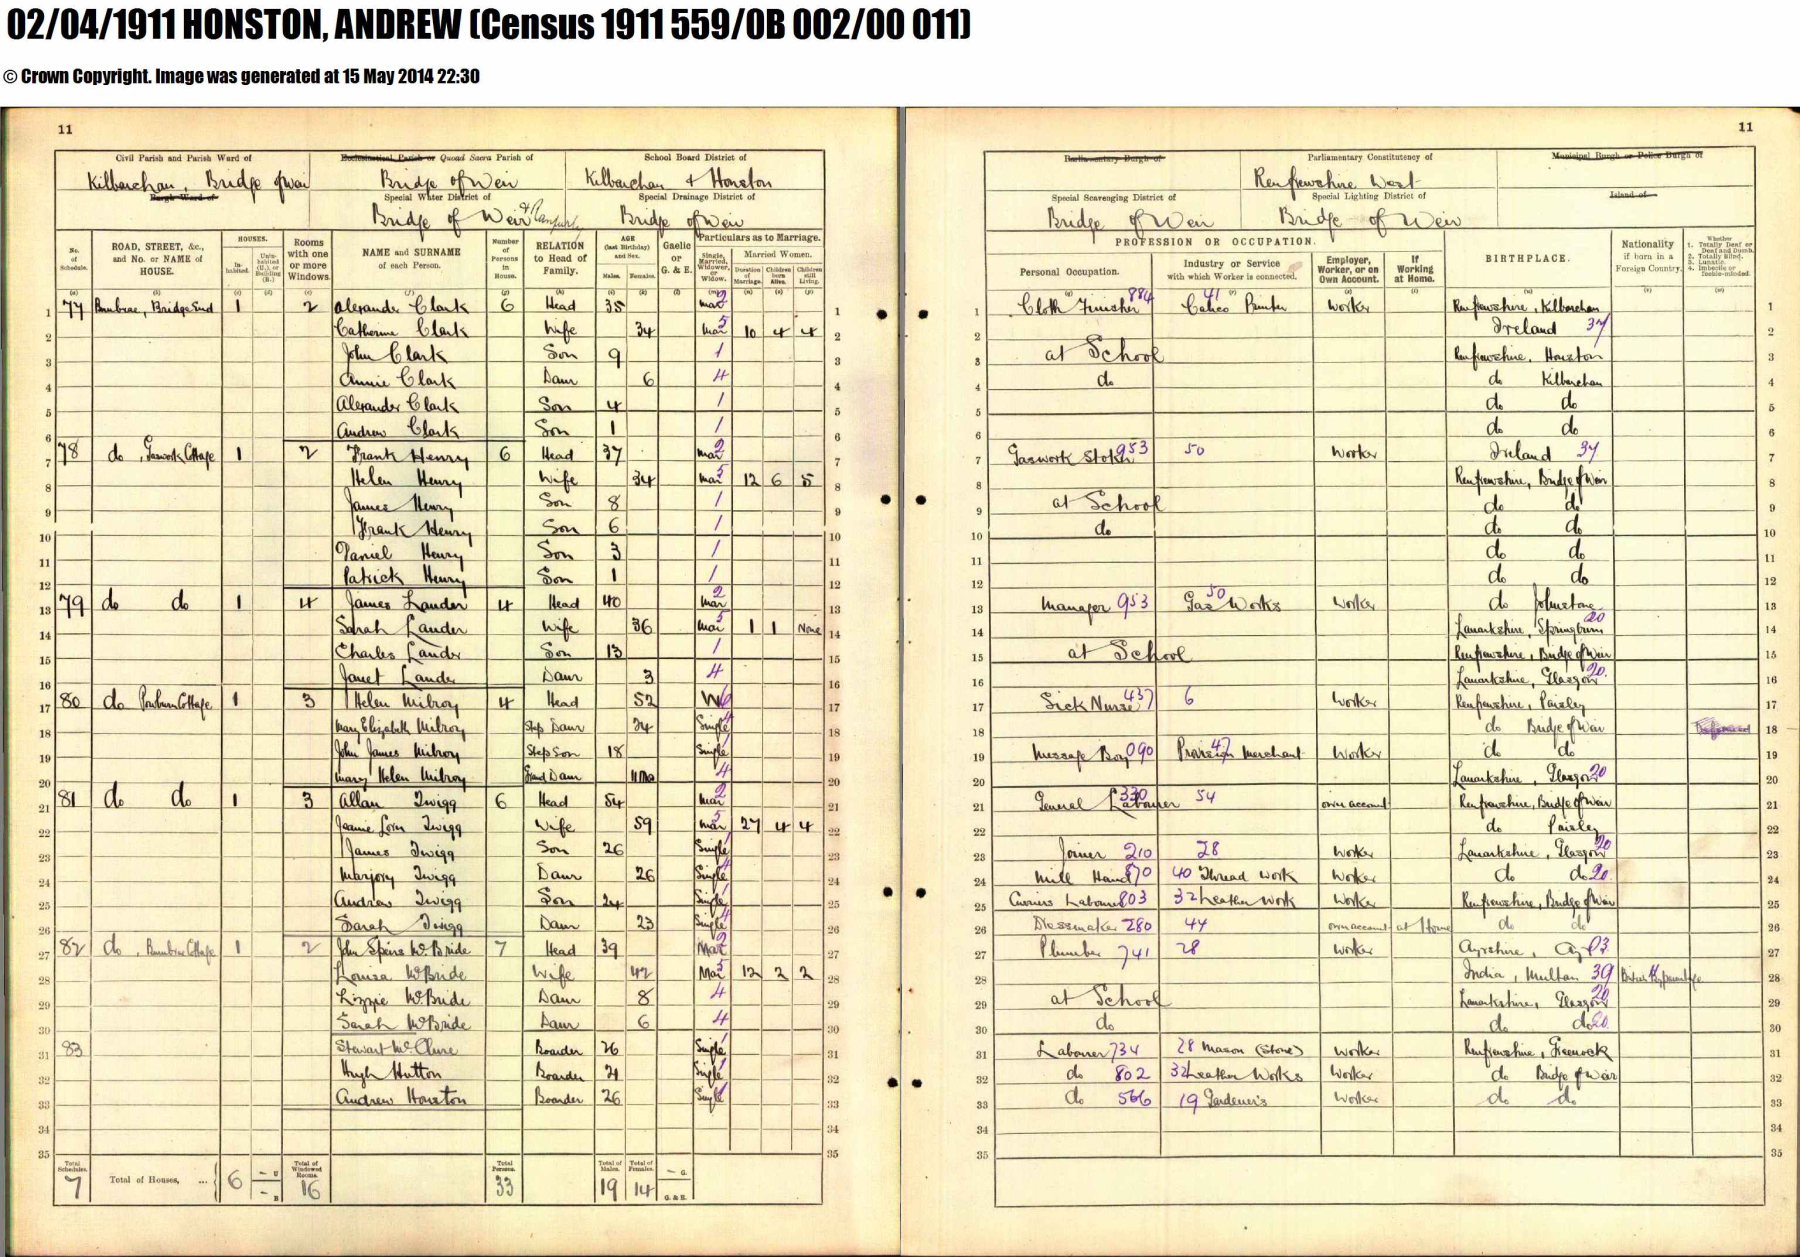 02/04/1911 HONSTON, ANDREW (Census 1911 559/0B 002/00 011)
© Crown Copyright. Image was generated at 15 May 2014 22:30
11
Civil Parish and Parish Ward of Ecclesiastical Parish or Quoad Sacra Parish of School Board District of
Kilbarchan, Bridge of Weir Bridge of Weir Kilbarchan & Houston
Burgh Ward of Special Water District of Special Drainage District of
Bridge of Weir & Ranfurly Bridge of Weir
No. of Schedule. ROAD, STREET, &c., and No. or NAME of HOUSE. HOUSES. Inhabited. Uninhabited (U.), or Building (B.) Rooms with one or more Windows. NAME and SURNAME of each Person. Number of Persons in House. RELATION to Head of Family. AGE (last Birthday) and Sex. Males. Females. Gaelic or G. & E. Particulars as to Marriage. Single, Married, Widower, or Widow. Married Women. Duration of Marriage. Children born Alive. Children still Living.
1 77 Burnbrae, Bridge End 1 2 Alexander Clark 6 Head 35 Mar 2 1
2 Catherine Clark Wife 34 Mar 5 10 4 4 2
3 John Clark Son 9 1 3
4 Annie Clark Daur 6 4 4
5 Alexander Clark Son 4 1 5
6 Andrew Clark Son 1 1 6
7 78 do, Gaswork Cottage 1 2 Frank Henry 6 Head 37 Mar 2 7
8 Helen Henry Wife 34 Mar 5 12 6 5 8
9 James Henry Son 8 1 9
10 Frank Henry Son 6 1 10
11 Daniel Henry Son 3 1 11
12 Patrick Henry Son 1 1 12
13 79 do do 1 4 James Lauder 4 Head 40 Mar 2 13
14 Sarah Lauder Wife 36 Mar 5 1 1 None 14
15 Charles Lauder Son 13 1 15
16 Janet Lauder Daur 3 4 16
17 80 do Cottage 1 3 Helen Milroy 4 Head 52 W 6 17
18 Mary Elizabeth Milroy Step Daur 24 Single 4 18
19 John James Milroy Step Son 18 Single 1 19
20 Mary Helen Milroy Grand Daur 11 Mo 4 20
21 81 do do 1 3 Allan Twigg 6 Head 54 Mar 2 21
22 Jeanie Twigg Wife 59 Mar 5 27 4 4 22
23 James Twigg Son 26 Single 1 23
24 Marjory Twigg Daur 26 Single 4 24
25 Andrew Twigg Son 24 Single 1 25
26 Sarah Twigg Daur 23 Single 4 26
27 82 do, Burnbrae Cottage 1 2 John Speirs McBride 7 Head 39 Mar 2 27
28 Louisa McBride Wife 42 Mar 5 12 2 2 28
29 Lizzie McBride Daur 8 4 29
30 Sarah McBride Daur 6 4 30
31 83 Stewart McClure Boarder 26 Single 1 31
32 Hugh Hutton Boarder 21 Single 1 32
33 Andrew Houston Boarder 26 Single 1 33
34 34
35 35
Total Schedules. 7 Total of Houses, ... 6 – U – B Total of Windowed Rooms. 16 Total Persons. 33 Total of Males. 19 Total of Females. 14 – G. G. & E.
11
Parliamentary Burgh of Parliamentary Constituency of Municipal Burgh or Police Burgh of
Renfrewshire West
Special Scavenging District of Special Lighting District of Island of
Bridge of Weir Bridge of Weir
PROFESSION OR OCCUPATION. Personal Occupation. Industry or Service with which Worker is connected. Employer, Worker, or on Own Account. If Working at Home. BIRTHPLACE. Nationality if born in a Foreign Country. Whether 1. Totally Deaf or Deaf and Dumb. 2. Totally Blind. 3. Lunatic. 4. Imbecile or feeble-minded.
1 Cloth Finisher 884 Calico Printer 41 Worker Renfrewshire, Kilbarchan 1
2 Ireland 34 2
3 at School Renfrewshire, Houston 3
4 do do Kilbarchan 4
5 do do 5
6 do do 6
7 Gaswork Stoker 953 50 Worker Ireland 34 7
8 Renfrewshire, Bridge of Weir 8
9 at School do do 9
10 do do do 10
11 do do 11
12 do do 12
13 Manager 953 Gas Works 50 Worker do Johnstone 13
14 Lanarkshire, Springburn 20 14
15 at School Renfrewshire, Bridge of Weir 15
16 Lanarkshire, Glasgow 20 16
17 Sick Nurse 437 6 Worker Renfrewshire, Paisley 17
18 do Bridge of Weir 18
19 Message Boy 090 Provision Merchant 47 Worker do do 19
20 Lanarkshire, Glasgow 20 20
21 General Labourer 330 54 own account Renfrewshire, Bridge of Weir 21
22 do Paisley 22
23 Joiner 210 28 Worker Lanarkshire, Glasgow 20 23
24 Mill Hand 870 40 Thread Work Worker do do 20 24
25 Curriers Labourer 803 32 Leather Work Worker Renfrewshire, Bridge of Weir 25
26 Dressmaker 280 44 own account at Home do do 26
27 Plumber 741 28 Worker Ayrshire, Ayr 03 27
28 India, Multan 39 British by parentage 28
29 at School Lanarkshire, Glasgow 20 29
30 do do do 20 30
31 Labourer 734 28 Mason (Stone) Worker Renfrewshire, Greenock 31
32 do 802 32 Leather Works Worker do Bridge of Weir 32
33 do 566 19 Gardener's Worker do do 33
34 34
35 35